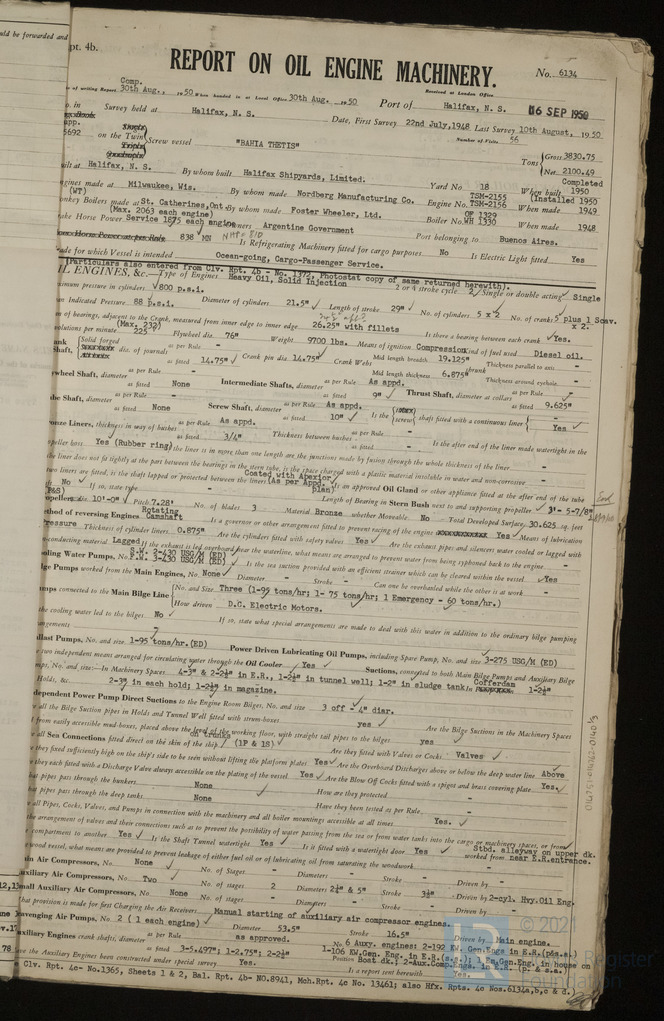 uld be forwarded and
pt. 4b.
REPORT ON OIL ENGINE MACHINERY.
No. 6134
Comp.
of writing Report 30th Aug., 1950 When handed in at Local Office 30th Aug. 1950
Received at London Office
Port of Halifax, N. S. 16 SEP 1950
No. in Survey held at Halifax, N. S. Date, First Survey 22nd July, 1948 Last Survey 10th August, 1950
Number of Visits 56
5692 on the Twin Screw vessel "BAHIA THETIS"
Tons Gross 3830.75
Net 2100.49
Built at Halifax, N. S. By whom built Halifax Shipyards, Limited. Yard No 18 When built Completed 1950
Engines made at Milwaukee, Wis. By whom made Nordberg Manufacturing Co. Engine No. TSM-2155 TSM-2156 When made (Installed 1950 1949
(WT)
Donkey Boilers made at St. Catherines, Ont. By whom made Foster Wheeler, Ltd. Boiler No. OF 1329 WH 1330 When made 1948
(Max. 2063 each engine)
Brake Horse Power Service 1875 each engine Owners Argentine Government Port belonging to Buenos Aires.
838 MN Is Refrigerating Machinery fitted for cargo purposes No Is Electric Light fitted Yes
Trade for which Vessel is intended Ocean-going, Cargo-Passenger Service.
(Particulars also entered from Clv. Rpt. 4b - No. 1372, Photostat copy of same returned herewith).
OIL ENGINES, &c.—Type of Engines Heavy Oil, Solid Injection 2 or 4 stroke cycle 2 Single or double acting Single
Maximum pressure in cylinders 800 p.s.i. Diameter of cylinders 21.5" Length of stroke 29" No. of cylinders 5 x 2 No. of cranks 5 plus 1 Scav. x 2.
Mean Indicated Pressure 88 p.s.i.
of bearings, adjacent to the Crank, measured from inner edge to inner edge 26.25" with fillets Is there a bearing between each crank Yes.
Revolutions per minute (Max. 232) 225 Flywheel dia. 76" Weight 9700 lbs. Means of ignition Compression Kind of fuel used Diesel oil.
Crank Shaft, Solid forged dia. of journals as per Rule - as fitted 14.75" Crank pin dia 14.75" Crank Webs Mid length breadth 19.125" Mid length thickness 6.875" shrunk Thickness parallel to axis - Thickness around eyehole -
Flywheel Shaft, diameter as per Rule - as fitted None Intermediate Shafts, diameter as per Rule As appd. as fitted 9" Thrust Shaft, diameter at collars as per Rule - as fitted 9.625"
Tube Shaft, diameter as per Rule - as fitted None Screw Shaft, diameter as per Rule As appd. as fitted 10" Is the screw shaft fitted with a continuous liner Yes
Bronze Liners, thickness in way of bushes as per Rule As appd. as fitted 3/4" Thickness between bushes as per Rule - as fitted - Is the after end of the liner made watertight in the
propeller boss Yes (Rubber ring) If the liner is in more than one length are the junctions made by fusion through the whole length of the liner -
If the liner does not fit tightly at the part between the bearings in the stern tube, is the space charged with a plastic material insoluble in water and non-corrosive -
If two liners are fitted, is the shaft lapped or protected between the liners Coated with Abexior (As per Appd. plan) Is an approved Oil Gland or other appliance fitted at the after end of the tube
No If so, state type - Length of Bearing in Stern Bush next to and supporting propeller 3'- 5-7/8"
(P&S) Propeller, dia 10'-0" Pitch 7.28' No. of blades 3 Material Bronze whether Moveable No Total Developed Surface 30.625 sq. feet
Method of reversing Engines Rotating Camshaft Is a governor or other arrangement fitted to prevent racing of the engine Yes Means of lubrication
Pressure Thickness of cylinder liners 0.875" Are the cylinders fitted with safety valves Yes Are the exhaust pipes and silencers water cooled or lagged with
non-conducting material Lagged If the exhaust is led overboard near the waterline, what means are arranged to prevent water from being syphoned back to the engine -
Cooling Water Pumps, No. S.W. 2-430 USG/M (ED) F.W. 3-430 USG/M (ED) Is the sea suction provided with an efficient strainer which can be cleared within the vessel Yes
Bilge Pumps worked from the Main Engines, No None Diameter - Stroke - Can one be overhauled while the other is at work -
Pumps connected to the Main Bilge Line No. and Size Three (1-95 tons/hr; 1- 75 tons/hr; 1 Emergency - 60 tons/hr.)
How driven D.C. Electric Motors.
Is the cooling water led to the bilges No If so, state what special arrangements are made to deal with this water in addition to the ordinary bilge pumping
arrangements -
Ballast Pumps, No. and size 1-95 tons/hr.(ED) Power Driven Lubricating Oil Pumps, including Spare Pump, No. and size 3-275 USG/M (ED)
Are two independent means arranged for circulating water through the Oil Cooler Yes Suctions, connected to both Main Bilge Pumps and Auxiliary Bilge
Pumps, No. and size:—In Machinery Spaces 4-3" & 2-2½" in E.R., 1-2½" in tunnel well; 1-2" in sludge tank In Cofferdam 1-2½"
Holds, &c. 2-3" in each hold; 1-2½" in magazine.
Independent Power Pump Direct Suctions to the Engine Room Bilges, No. and size 3 off - 4" diar.
Are all the Bilge Suction pipes in Holds and Tunnel Well fitted with strum-boxes yes Are the Bilge Suctions in the Machinery Spaces
led from easily accessible mud-boxes, placed above the level of the working floor, with straight tail pipes to the bilges yes
Are all Sea Connections fitted direct on the skin of the ship on trunks (1P & 1S) Are they fitted with Valves or Cocks Valves
Are they fixed sufficiently high on the ship's side to be seen without lifting the platform plates Yes Are the Overboard Discharges above or below the deep water line Above
Are they each fitted with a Discharge Valve always accessible on the plating of the vessel Yes Are the Blow Off Cocks fitted with a spigot and brass covering plate Yes.
What pipes pass through the bunkers None How are they protected -
What pipes pass through the deep tanks None Have they been tested as per Rule -
Are all Pipes, Cocks, Valves, and Pumps in connection with the machinery and all boiler mountings accessible at all times Yes.
Is the arrangement of valves and their connections such as to prevent the possibility of water passing from the sea or from water tanks into the cargo or machinery spaces, or from
one compartment to another Yes Is the Shaft Tunnel watertight Yes Is it fitted with a watertight door Yes worked from Stbd. alleyway on upper dk. near E.R.entrance.
If a wood vessel, what means are provided to prevent leakage of either fuel oil or of lubricating oil from saturating the woodwork -
Main Air Compressors, No. None No. of Stages - Diameters - Stroke - Driven by -
Auxiliary Air Compressors, No. Two No. of stages 2 Diameters 2¼" & 5" Stroke 3½" Driven by 2-cyl. Hvy.Oil Eng.
Small Auxiliary Air Compressors, No. None No. of stages - Diameters - Stroke - Driven by -
What provision is made for first Charging the Air Receivers Manual starting of auxiliary air compressor engines.
Scavenging Air Pumps, No. 2 ( 1 each engine) Diameter 53.5" Stroke 16.5" Driven by Main engine.
Auxiliary Engines crank shafts, diameter as per Rule as approved. as fitted 3-5.497"; 1-2.75"; 2-2¼" No. 6 Auxy. engines: 2-192 KW. Gen.Engs in E.R.(p&s.s)
Position 1-106 KW.Gen. Eng. in E.R.(s.s.); Gen.Eng. in house on Boat dk.; 2-Aux.Comp.Engs. in E.R. (p. & s.s.
Have the Auxiliary Engines been constructed under special survey Yes. Is a report sent herewith Yes.
Clv. Rpt. 4c- No.1365, Sheets 1 & 2, Bal. Rpt. 4b- NO.8941, Mch.Rpt. 4c No. 13461; also Hfx. Rpts. 4c Nos.6134a,b,c & d.
© 2021
Register
Foundation